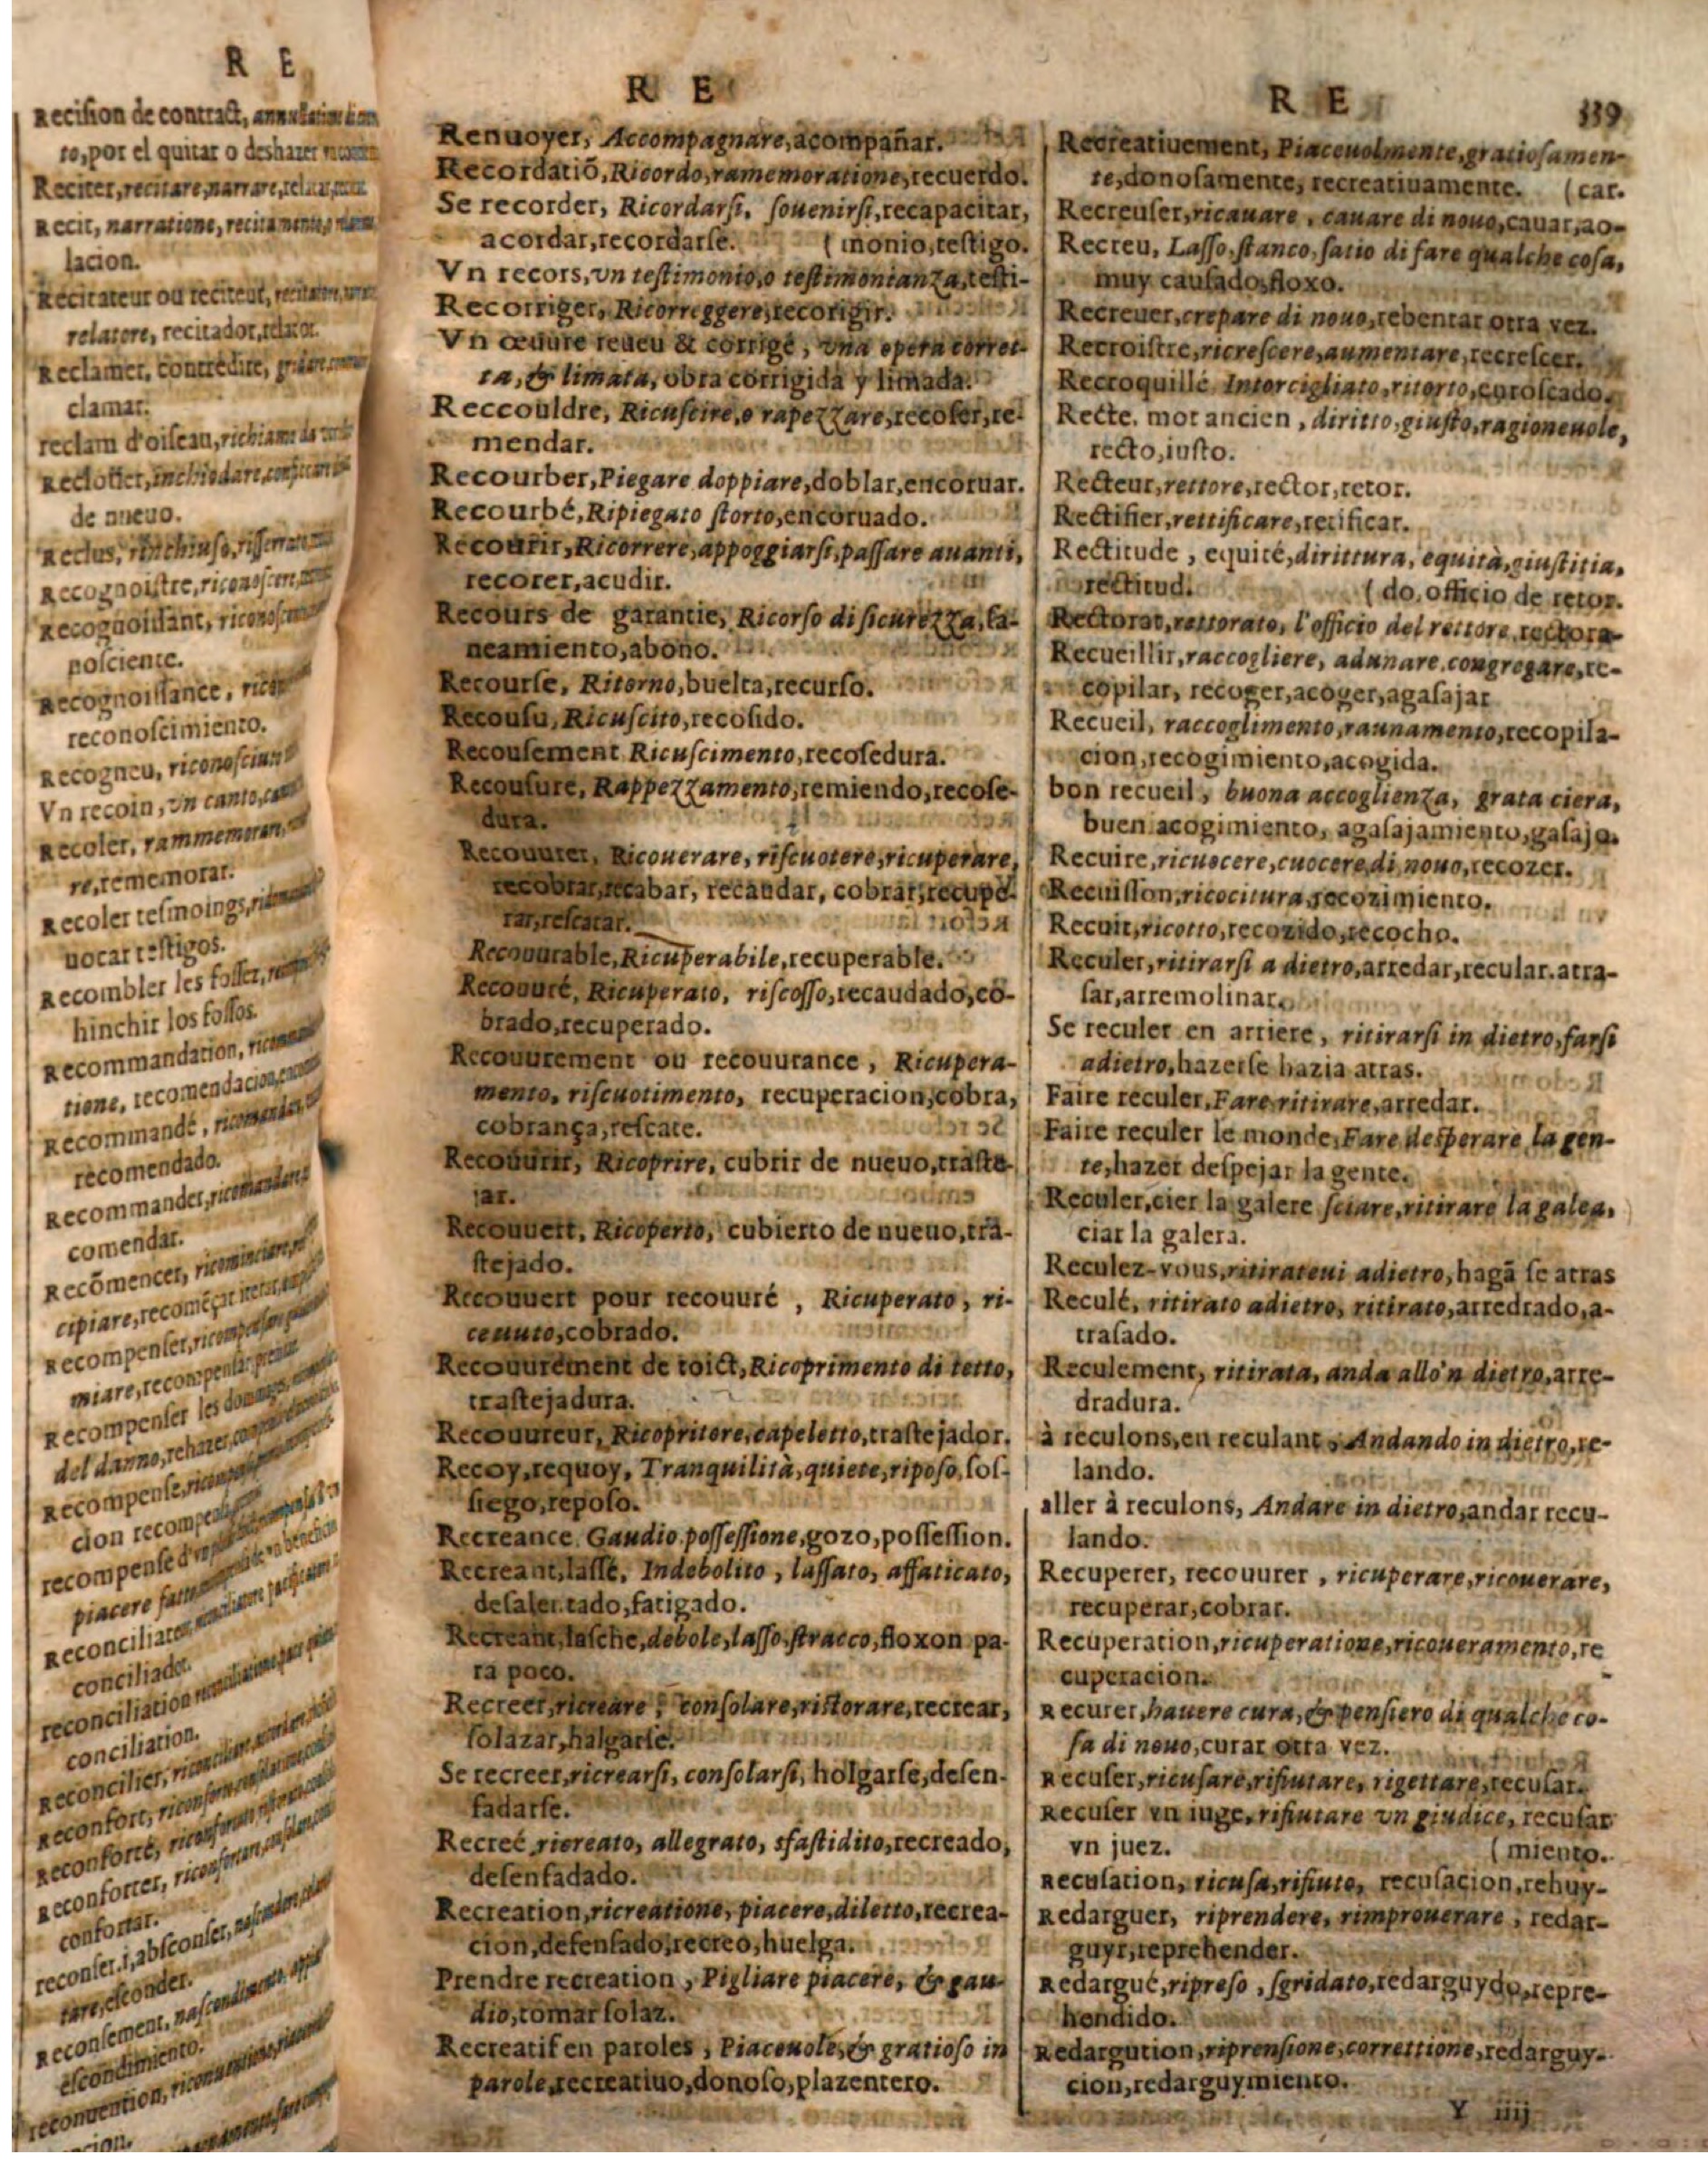 R E
Recision de contract,
to,por el quitar o deshazer
Reciter,recitare,narrare,
Recit, narratione,
lacion.
Recitateur ou reciteur,
relatore, recitador,relator.
Reclamer, contredire,
clamar.
reclam d'oiseau,richiamo
Reclouer,inchiodare,
de nueuo.
Reclus, rinchiuso,
Recognoistre,riconoscere,
Recognoissant,
nosciente.
Recognoissance,
reconoscimiento.
Recogneu,
Vn recoin,vn canto,
Recoler, rammemorare,
re,rememorar.
Recoler tesmoings,
uocar testigos.
Recombler les fossez,
hinchir los fossos.
Recommandation,
tione, recomendacion,
Recommandé,
recomendado.
Recommander,
comendar.
Recõmencer,
cipiare,
Recompenser,
miare,recompensar
Recompenser les
del danno,rehazer,
Recompense,
cion
recompense
piacere
Reconciliateur
conciliador.
reconciliation
conciliation.
Reconcilier,
Reconfort,
Reconforté,
Reconforter,
confortar.
reconser.i,absconser,
tare,esconder.
Reconsement,
escondimiento.
reconuention,
R E
Renuoyer, Accompagnare,acompañar.
Recordatiõ,Ricordo,ramemoratione,recuerdo.
Se recorder, Ricordarsi, souenirsi,recapacitar,
acordar,recordarse. (monio,testigo.
Vn recors,vn testimonio,o testimonianza,testi-
Recorriger, Ricorreggere,recorigir.
Vn œuure reueu & corrigé, vna opera corret-
ta,& limata,obra corrigida y limada.
Reccouldre, Ricuscire,o rapezzare,recoser,re-
mendar.
Recourber,Piegare doppiare,doblar,encoruar.
Recourbé,Ripiegato storto,encoruado.
Recourir,Ricorrere,appoggiarsi,passare auanti,
recorer,acudir.
Recours de garantie, Ricorso di sicurezza,sa-
neamiento,abono.
Recourse, Ritorno,buelta,recurso.
Recousu,Ricuscito,recosido.
Recousement Ricuscimento,recosedura.
Recousure, Rappezzamento,remiendo,recose-
dura.
Recouurer, Ricouerare, riscuotere,ricuperare,
recobrar,recabar, recaudar, cobrar,recupe-
rar,rescatar.
Recouurable,Ricuperabile,recuperable.
Recouuré, Ricuperato, riscosso,recaudado,co-
brado,recuperado.
Recouurement ou recouurance, Ricupera-
mento, riscuotimento, recuperacion,cobra,
cobrança,rescate.
Recouurir, Ricoprire, cubrir de nueuo,traste-
jar.
Recouuert, Ricoperto, cubierto de nueuo,tra-
stejado.
Recouuert pour recouuré, Ricuperato, ri-
ceuuto,cobrado.
Recouurement de toict,Ricoprimento di tetto,
trastejadura.
Recouureur, Ricopritore,capeletto,trastejador.
Recoy,requoy, Tranquilità,quiete,riposo,sos-
siego,reposo.
Recreance Gaudio possessione,gozo,possession.
Recreant,lassé, Indebolito, lassato, affaticato,
desalentado,fatigado.
Recreant,lasche,debole,lasso,stracco,floxon pa-
ra poco.
Recreer,ricreare, consolare,ristorare,recrear,
solazar,halgarse.
Se recreer,ricrearsi, consolarsi, holgarse,desen-
fadarse.
Recreé ricreato, allegrato, sfastidito,recreado,
desenfadado.
Recreation,ricreatione, piacere,diletto,recrea-
cion,desenfado,recreo,huelga.
Prendre recreation, Pigliare piacere, & gau-
dio,tomar solaz.
Recreatif en paroles, Piaceuole,& gratioso in
parole,recreatiuo,donoso,plazentero.
R E 339
Recreatiuement, Piaceuolmente,gratiosamen-
te,donosamente, recreatiuamente. (car.
Recreuser,ricauare, cauare di nouo,cauar,ao-
Recreu, Lasso,stanco,satio di fare qualche cosa,
muy causado,floxo.
Recreuer,crepare di nouo,rebentar otra vez.
Recroistre,ricrescere,aumentare,recrescer.
Recroquillé Intorcigliato,ritorto,enroscado.
Recte, mot ancien, diritto,giusto,ragioneuole,
recto,iusto.
Recteur,rettore,rector,retor.
Rectifier,rettificare,retificar.
Rectitude, equité,dirittura, equità,giustitia,
rectitud. (do,officio de retor.
Rectorat,rettorato, l'officio del rettore,rectora-
Recueillir,raccogliere, adunare,congregare,re-
copilar, recoger,acoger,agasajar
Recueil, raccoglimento,raunamento,recopila-
cion,recogimiento,acogida.
bon recueil, buona accoglienza, grata ciera,
buen acogimiento, agasajamiento,gasajo.
Recuire,ricuocere,cuocere di nouo,recozer.
Recuission,ricocitura,recozimiento.
Recuit,ricotto,recozido,recocho.
Reculer,ritirarsi a dietro,arredar,recular.atra-
sar,arremolinar.
Se reculer en arriere, ritirarsi in dietro,farsi
adietro,hazerse hazia atras.
Faire reculer,Fare ritirare,arredar.
Faire reculer le monde,Fare desperare la gen-
te,hazer despejar la gente.
Reculer,cier la galere sciare,ritirare la galea,
ciar la galera.
Reculez-vous,ritirateui adietro,hagã se atras
Reculé, ritirato adietro, ritirato,arredrado,a-
trasado.
Reculement, ritirata, anda allo'n dietro,arre-
dradura.
à reculons,en reculant, Andando in dietro,re-
lando.
aller à reculons, Andare in dietro,andar recu-
lando.
Recuperer, recouurer, ricuperare,ricouerare,
recuperar,cobrar.
Recuperation,ricuperatione,ricoueramento,re
cuperacion.
Recurer,hauere cura,& pensiero di qualche co-
sa di nouo,curar otra vez.
Recuser,ricusare,rifiutare, rigettare,recusar.
Recuser vn iuge,rifiutare vn giudice, recusar
vn juez. (miento.
Recusation, ricusa,rifiuto, recusacion,rehuy-
Redarguer, riprendere, rimprouerare, redar-
guyr,reprehender.
Redargué,ripreso, sgridato,redarguydo,repre-
hendido.
Redargution,riprensione,correttione,redarguy-
cion,redarguymiento.
Y iiij